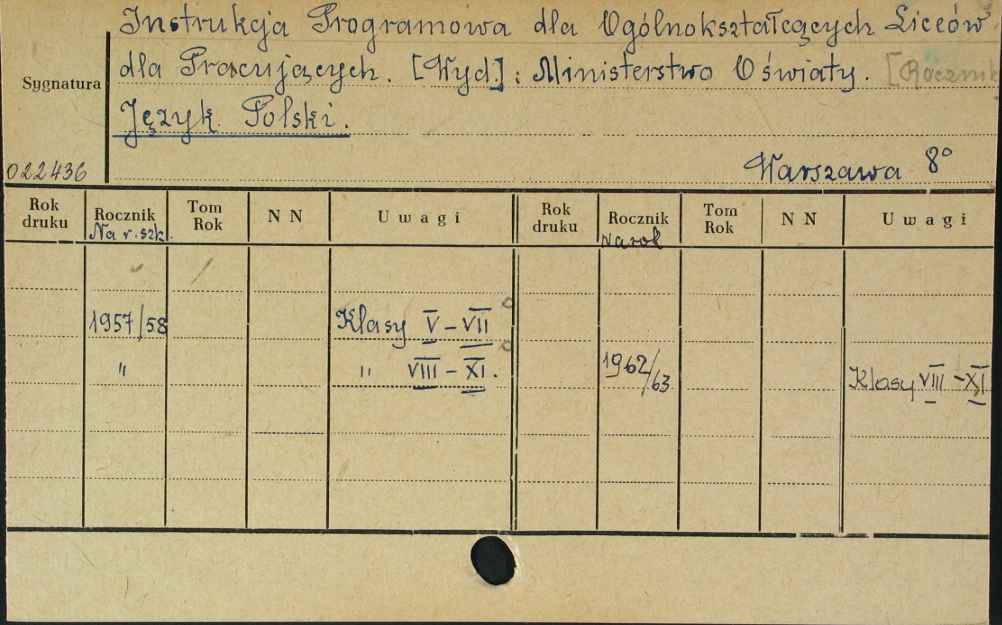 Instrukcja Programowa dla Ogólnokształcących Liceów
dla Pracujących. [Wyd.]: Ministerstwo Oświaty. [Rocznik
Sygnatura
Język Polski.
022436
Warszawa 8°
Rok druku Rocznik Tom Rok N N Uwagi Rok druku Rocznik Tom Rok N N Uwagi
Na r. szk. Na rok
1957/58 Klasy V-VII
" " VIII-XI. 1962/63 Klasy VIII-XI